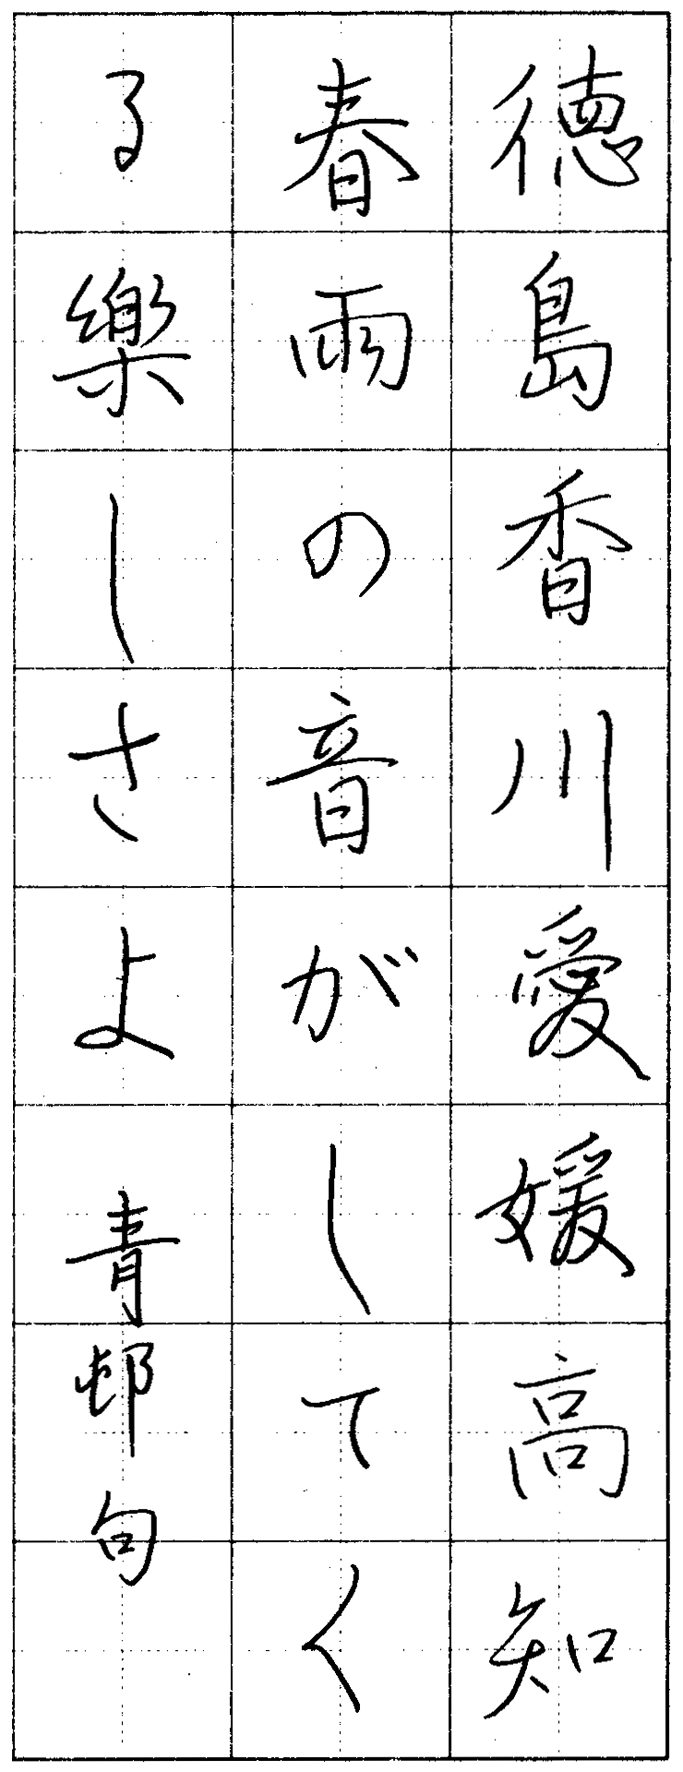 徳島香川愛媛高知
春雨の音がしてく
る樂しさよ 青邨句